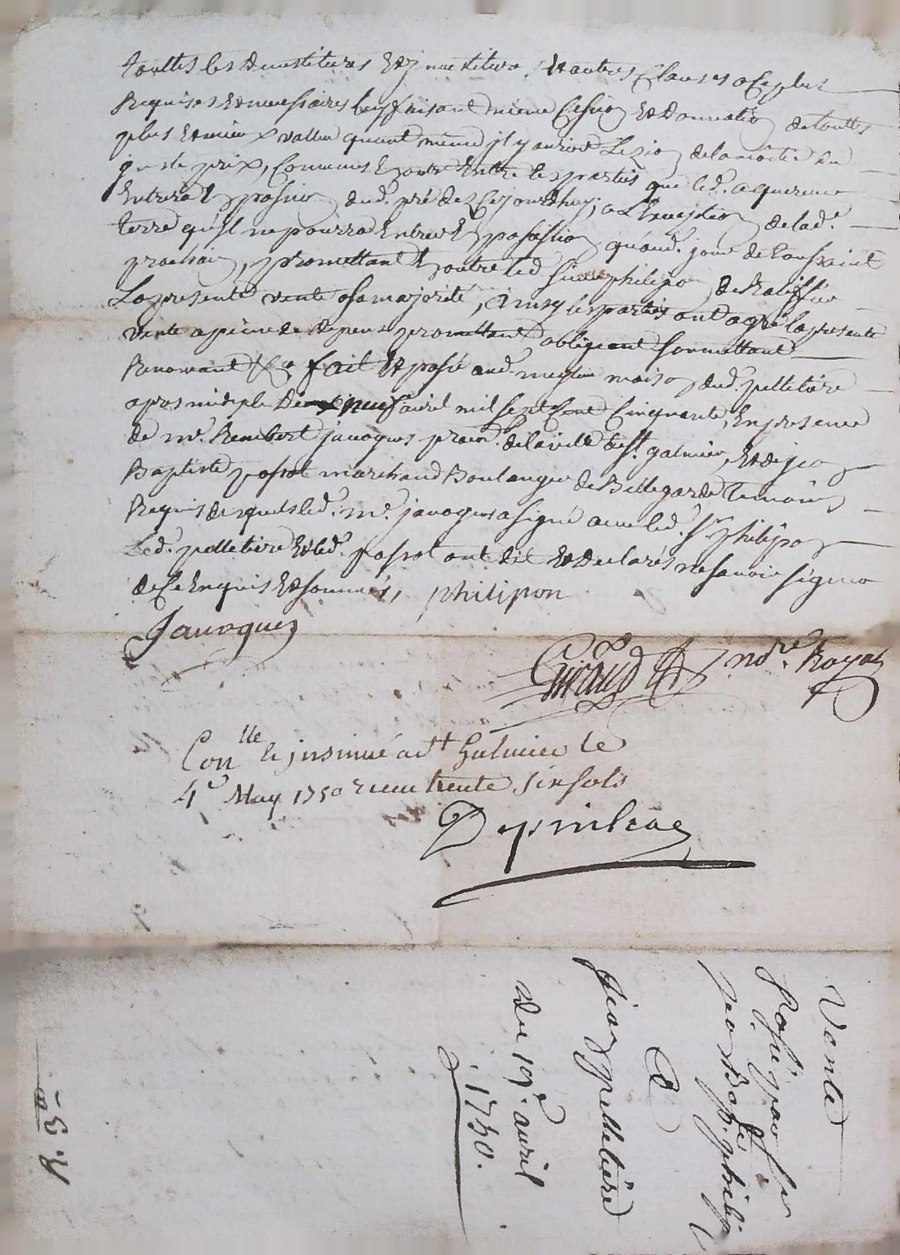 touttes les devestitures Et jnvestitures, Et autres Clauses a Ce plus
Requises Et necessaires luy faisant mieme Cession Et Donnation de touttes
plus Et mieux vallue quant mieme jl y auroit Lezion de la moitié du
juste prix, Convenus En outre Entre les parties que led. acquereur
Entrera En possion dud. pré dez Ce jourdhuy, a L'Exeption de lad.e
terre qu'jl ne pourra Entrer En possession qu'aud. jour de toussaint
prochain, promettant En outre led sieur philipon de Ratiffier
La presente vente a sa majorité, ainsy les parties ont agréé la presente
vente a peine de depens promettant obligeant soumettant
Renonceant &a fait Et passé aud. maison dud. pelletiere
apres midy le dix neuf avril mil sept Cent Cinquante, En presence
de me. Rembert javogues de la ville de St. galmier, Et de jean
Baptiste possot marchand Boulanger de Bellegarde temoins
Requis desquels led. me. javogues a signé avec led. Sr. philipon
Led. pelletiere Et led. possot ont dit Et declarés ne savoir signer
de Ce Enquis Et sommés, philipon
Javogues
Giraud nore. Royal
Con.lle et jnsinué a St Galmier le
4e May 1750 receu trente six sols
Depinhac
Vente
Passé par Sr
jean Bap.te philipon
A
jean pelletiere
Du 19e. avril
1750.